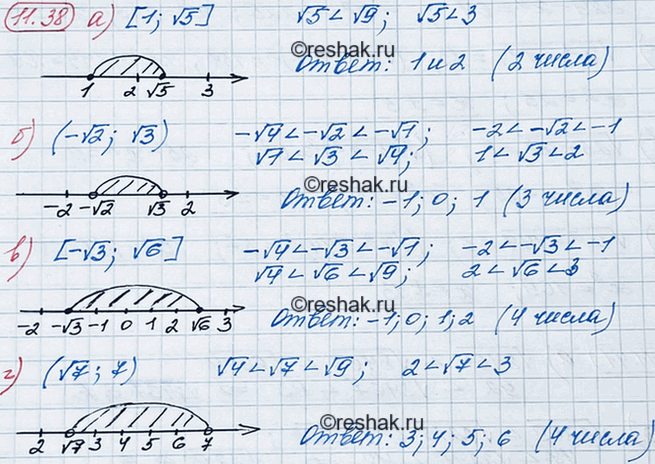 11.38 а) [1; √5] √5 < √9; √5 < 3
1 2 √5 3 Ответ: 1 и 2 (2 числа)
©reshak.ru
б) (-√2; √3) -√4 < -√2 < -√1; -2 < -√2 < -1
√1 < √3 < √4; 1 < √3 < 2
-2 -√2 √3 2 Ответ: -1; 0; 1 (3 числа)
©reshak.ru
в) [-√3; √6] -√4 < -√3 < -√1; -2 < -√3 < -1
√4 < √6 < √9; 2 < √6 < 3
©reshak.ru
-2 -√3 -1 0 1 2 √6 3 Ответ: -1; 0; 1; 2 (4 числа)
г) (√7; 7) √4 < √7 < √9; 2 < √7 < 3
©reshak.ru
2 √7 3 4 5 6 7 Ответ: 3; 4; 5; 6 (4 числа)